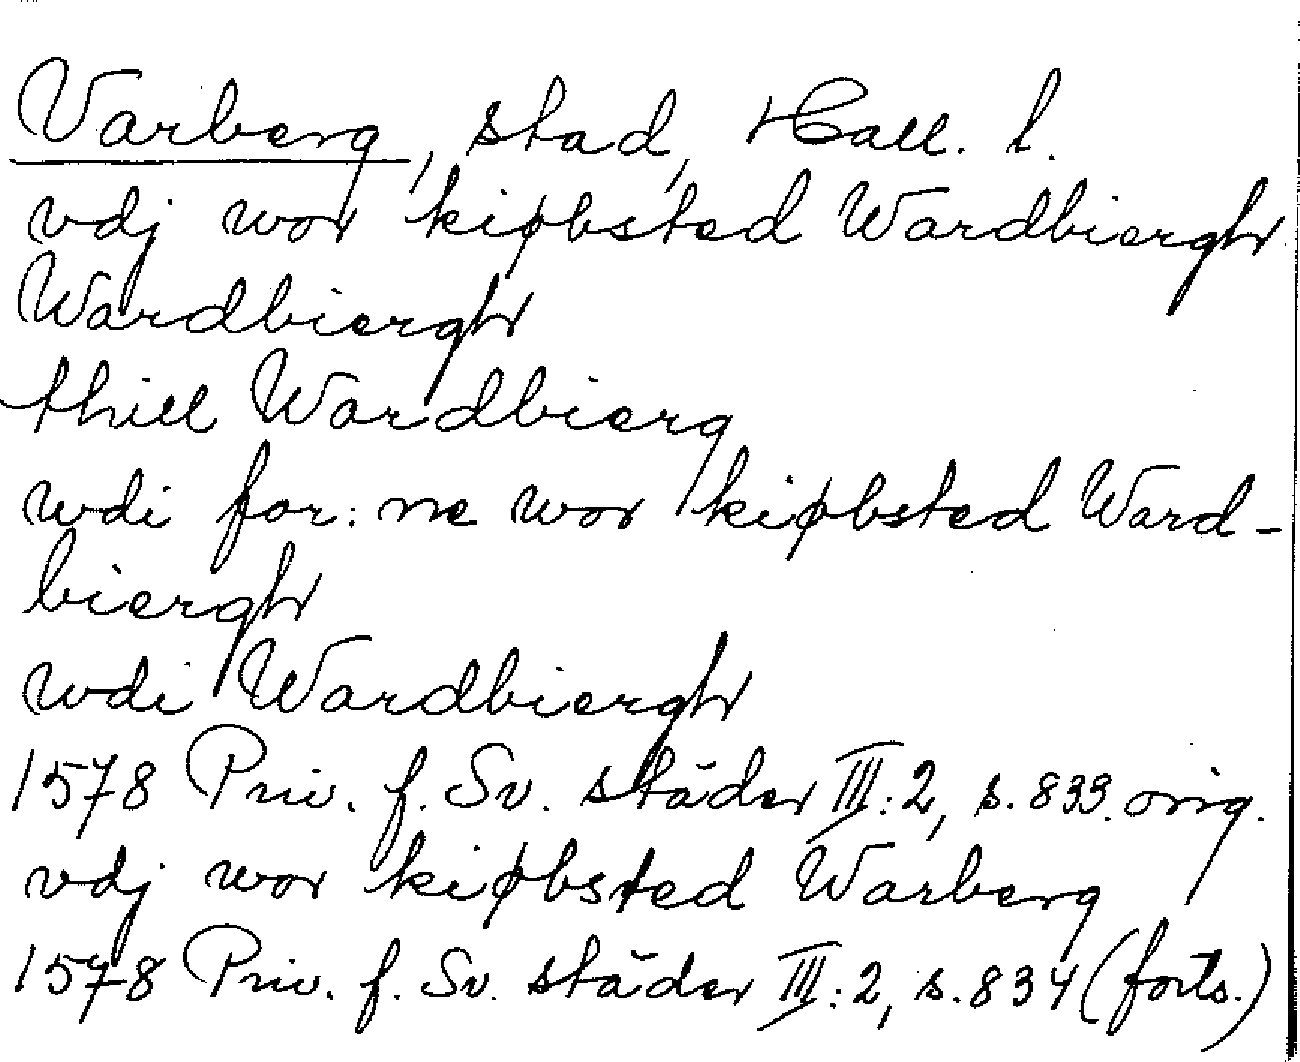 Varberg, stad, Hall. l.
vdj wor kiøbsted Wardbiergh
Wardbiergh
thill Wardbierg
wdi for: ne wor kiøbsted Ward-
biergh
wdi Wardbiergh
1578 Priv. f. Sv. städer III:2, s. 833. orig.
vdj wor kiøbsted Warberg
1578 Priv. f. Sv. städer III:2, s. 834 (forts.)